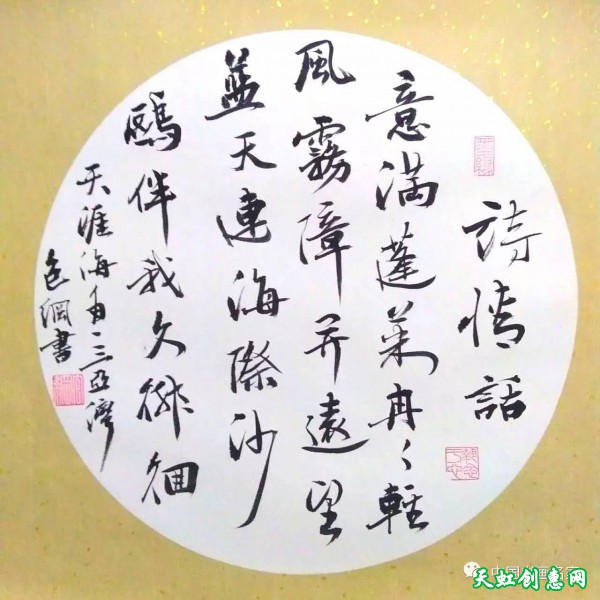 詩情話
意满蓬莱冉々輕
風霧障开遠望
蓝天連海際沙
鷗伴我久徘徊
天涯海角三亞灣
綱書
中国
天虹创惠网